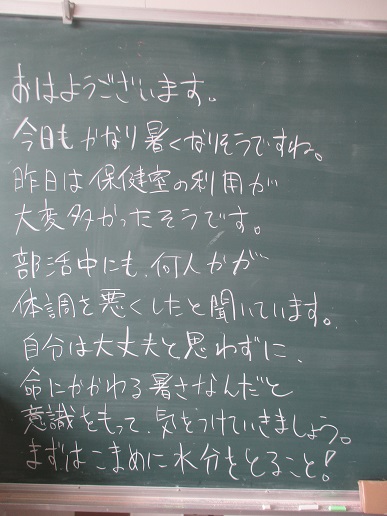 おはようございます。
今日もかなり暑くなりそうですね。
昨日は保健室の利用が
大変多かったそうです。
部活中にも、何人かが
体調を悪くしたと聞いています。
自分は大丈夫と思わずに、
命にかかわる暑さなんだと
意識をもって、気をつけていきましょう。
まずはこまめに水分をとること!